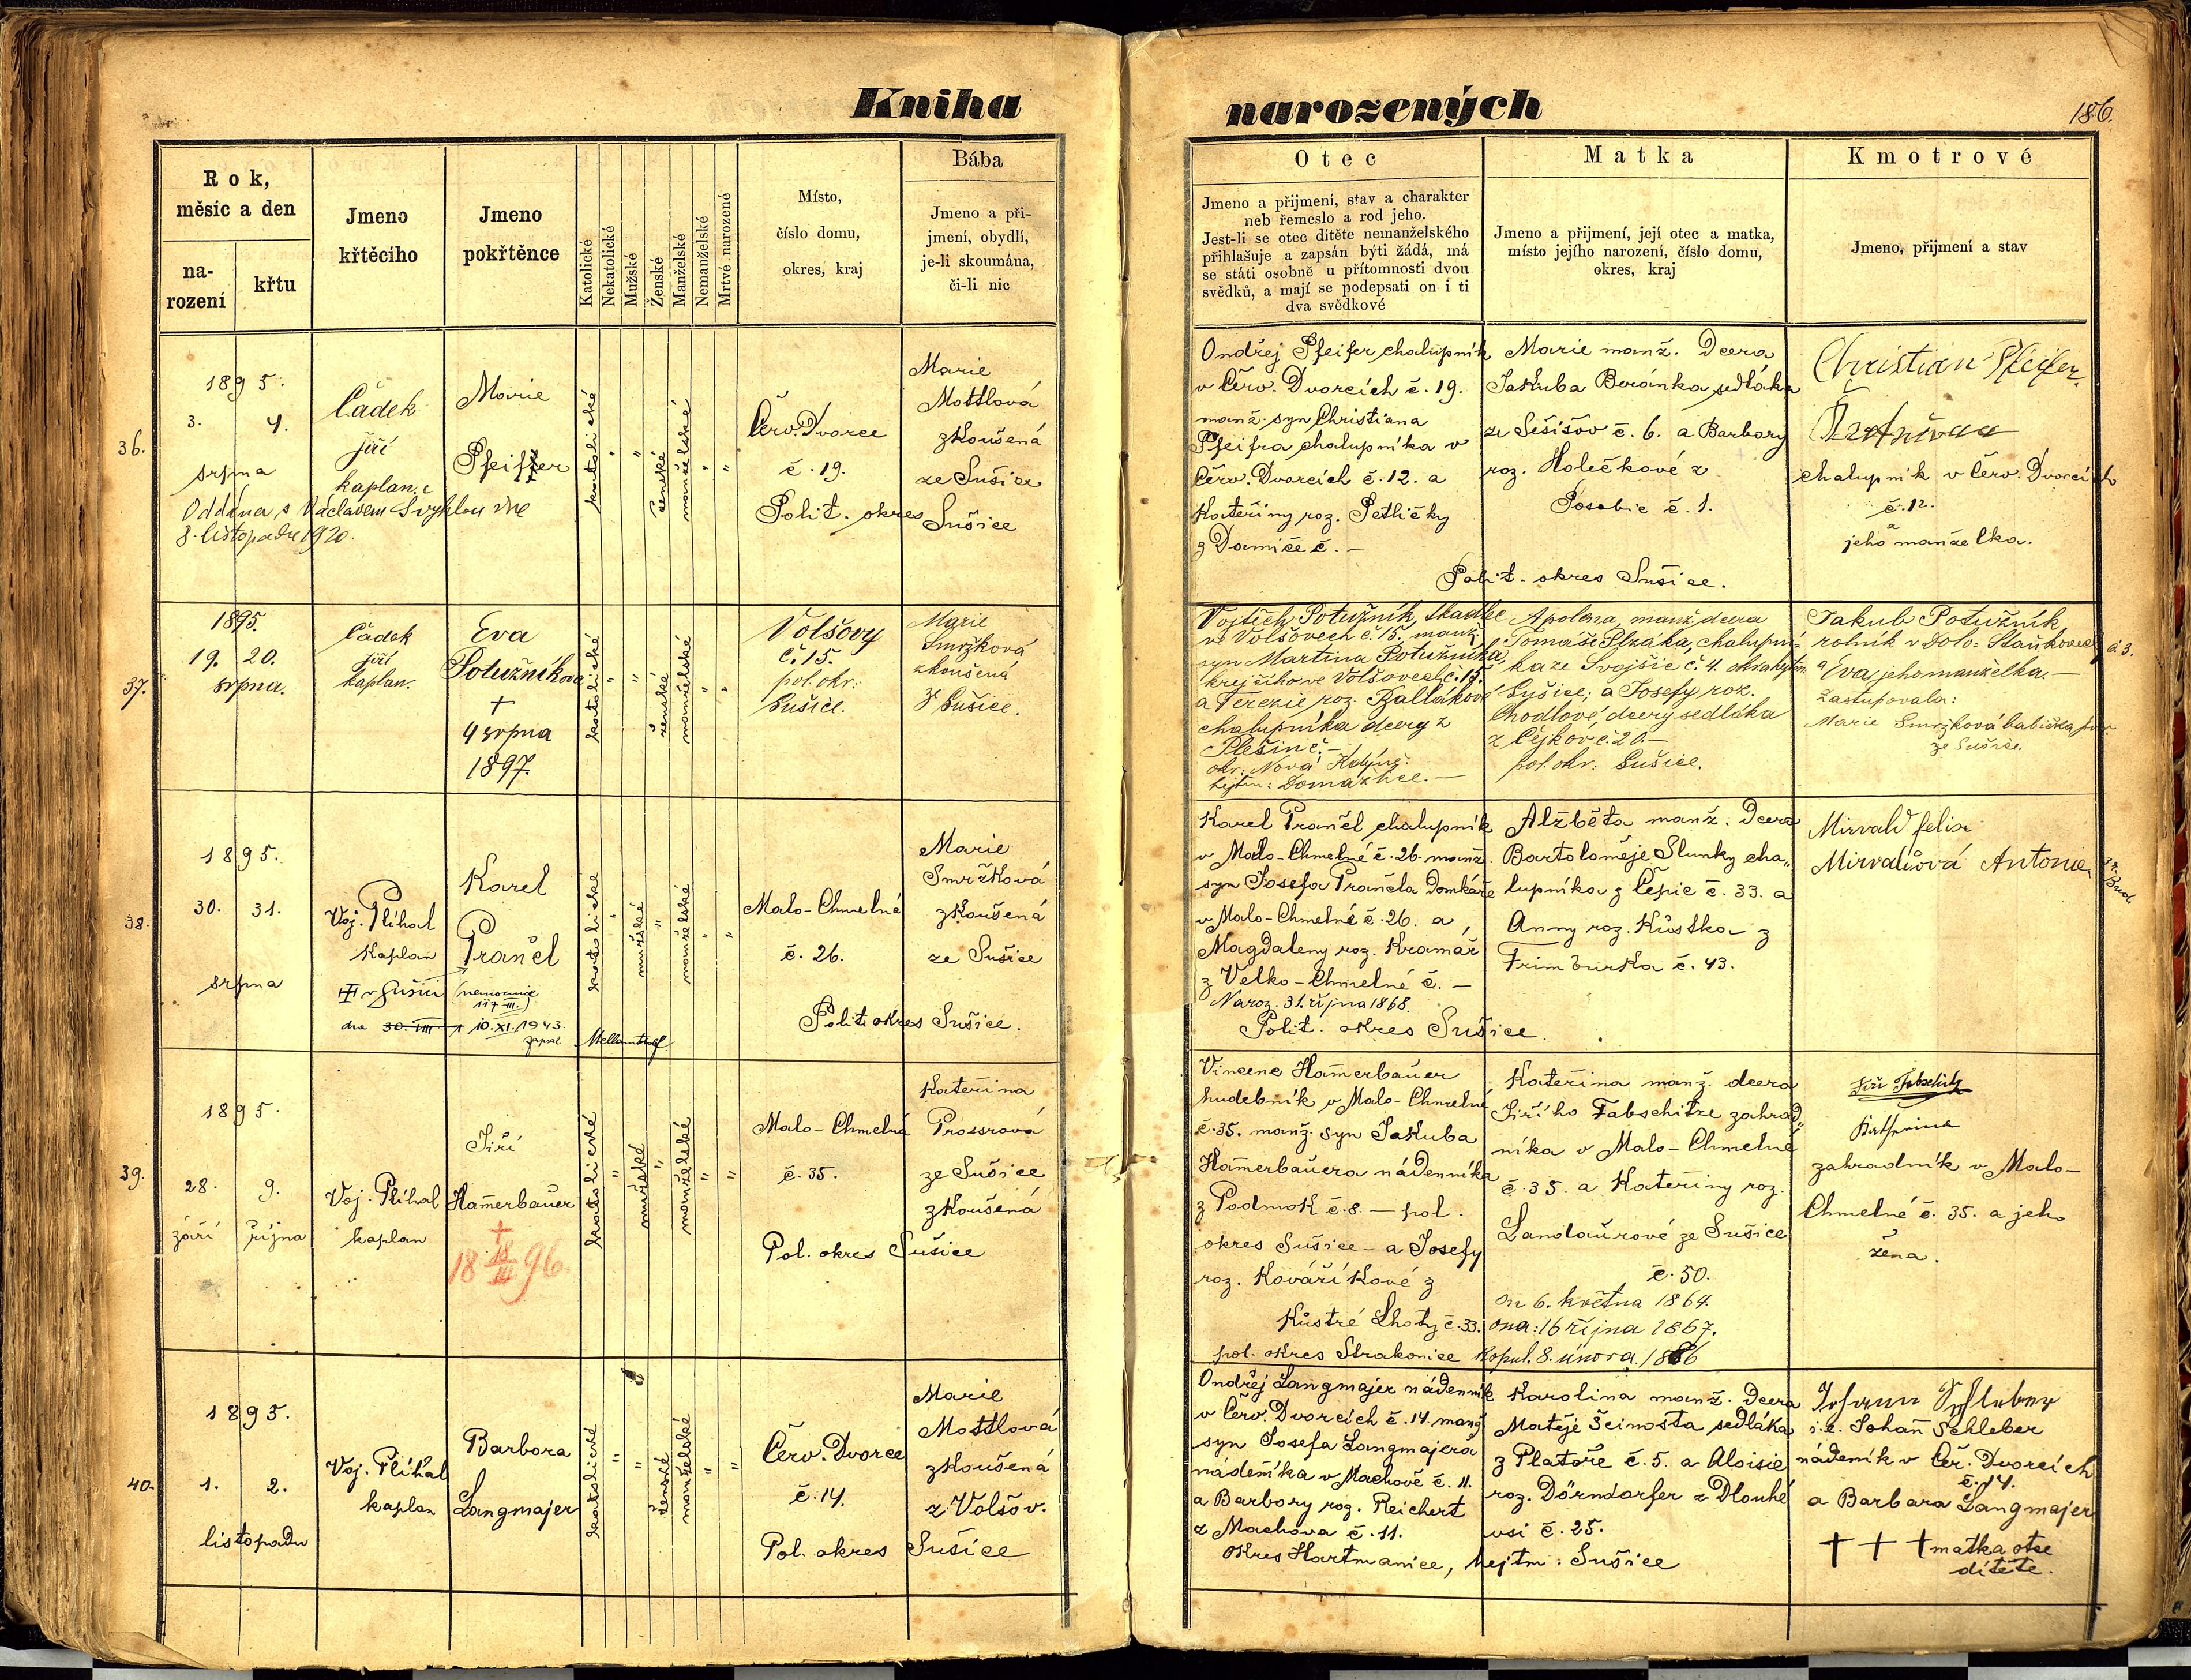 Kniha narozených
186.
Rok, měsíc a den
narození
křtu
Jmeno křtěcího
Jmeno pokřtěnce
Katolické
Nekatolické
Mužské
Ženské
Manželské
Nemanželské
Mrtvé narozené
Místo,
číslo domu,
okres, kraj
Bába
Jmeno a při-
jmení, obydlí,
je-li skoumána,
či-li nic
Otec
Jmeno a přijmení, stav a charakter
neb řemeslo a rod jeho.
Jest-li se otec dítěte nemanželského
přihlašuje a zapsán býti žádá, má
se státi osobně u přítomnosti dvou
svědků, a mají se podepsati on i ti
dva svědkové
Matka
Jmeno a přijmení, její otec a matka,
místo jejího narození, číslo domu,
okres, kraj
Kmotrové
Jmeno, přijmení a stav
36.
1895.
3. 4.
srpna
Čádek
Jiří
kaplan.
Oddána s Václavem Svyhlou dne
3. listopadu 1920.
Marie
Pfeiffer
katolické
"
"
ženské
manželské
"
"
Červ. Dvorce
č. 19.
Polit. okres Sušice
Marie
Mottlová
zkoušená
ze Sušice
Ondřej Pfeifer chalupník
v Červ. Dvorcích č. 19.
manž. syn Christiana
Pfeifra chalupníka v
Červ. Dvorcích č. 12. a
Kateřiny roz. Petličky
z Damíče č. —
Marie manž. dcera
Jakuba Beránka sedláka
ze Sešišov č. 6. a Barbory
roz. Holečkové z
Posobic č. 1.
Polit. okres Sušice.
Christian Pfeifer
chalupník v Červ. Dvorcích
č. 12.
a
jeho manželka.
37.
1895.
19. 20.
srpna.
Čádek
Jiří
kaplan.
Eva
Potužníkova
†
4 srpna
1897.
katolické
"
"
ženské
manželské
"
"
Volšovy
č. 15.
pol. okr:
Sušice.
Marie
Smržková
zkoušená
z Sušice.
Vojtěch Potužník, tkadlec
ve Volšovech č. 15, manž.
syn Martina Potužníka,
krejčího ve Volšovech č. 15.
a Terezie roz. Baltákové
chalupníka dcery z
Plešin č. —
okr: Nová Kdýně.
hejtm: Domažlice. —
Apolena, manž. dcera
Tomáše Slzáka, chalupní-
ka ze Svojšic č. 4. okr. a hejtm:
Sušice; a Josefy roz.
Chodlové, dcery sedláka
z Čejkov č. 20. —
pol. okr: Sušice.
Jakub Potužník,
rolník v Dolo-Staňkovech č 3.
a Eva, jeho manželka. —
Zastupovala:
Marie Smržková babička
ze Sušice.
38.
1895.
30. 31.
srpna
Voj. Plíhal
kaplan
Karel
Prančl
v Sušici (nemocnice
117 III.)
dne 30. VIII 10. XI. 1943.
katolické
"
mužské
"
manželské
"
"
Malo-Chmelná
č. 26.
Polit. okres Sušice.
Marie
Smržková
zkoušená
ze Sušice
Karel Prančl chalupník
v Malo-Chmelné č. 26. manž.
syn Josefa Prančla domkáře
v Malo-Chmelné č. 26. a
Magdaleny roz. Kramář
z Velko-Chmelné č. —
Naroz. 31. října 1868.
Polit. okres Sušice.
Alžběta manž. dcera
Bartoloměje Slunky cha„
lupníka z Čepic č. 33. a
Anny roz. Kůstka z
Frimburka č. 43.
Mirvald felix
Mirvaldová Antonie
39.
1895.
28. 9.
září října
Voj. Plíhal
kaplan
Jiří
Hamerbauer
†
18 18/III 96
katolické
"
mužské
"
manželské
"
"
Malo-Chmelná
č. 35.
Pol. okres Sušice
Kateřina
Prossrová
ze Sušice
zkoušená
Vincenc Hamerbauer
hudebník v Malo-Chmelné
č. 35. manž. syn Jakuba
Hamerbauera nádenníka
z Podmok č. 8. — pol.
okres Sušice — a Josefy
roz. Kováříkové z
Kůstré Lhoty č. 33.
pol. okres Strakonice
Kateřina manž. dcera
Jiřího Fabschitze zahrad„
níka v Malo-Chmelné
č. 35. a Kateřiny roz.
Landaurové ze Sušice
č. 50.
on 6. května 1864.
ona: 16 října 1867.
kopul. 8. února. 1886
Jiří Fabschitz
Katherina
zahradník v Malo-
Chmelné č. 35. a jeho
žena.
40.
1895.
1. 2.
listopadu
Voj. Plíhal
kaplan
Barbora
Langmajer
katolické
"
"
ženské
manželské
"
"
Červ. Dvorce
č. 14.
Pol. okres Sušice
Marie
Mottlová
zkoušená
z Volšov.
Ondřej Langmajer nádenník
v Červ. Dvorcích č. 14. manž.
syn Josefa Langmajera
nádeníka v Machově č. 11.
a Barbory roz. Reichert
z Machova č. 11.
okres Hartmanice, hejtm: Sušice
Karolina manž. dcera
Matěje Šeinosta sedláka
z Platoře č. 5. a Aloisie
roz. Dörndorfer z Dlouhé
vsi č. 25.
Johann Schleber
i. e. Johan Schleber
nádeník v Čer. Dvorcích
č. 14.
a Barbara Langmajer
† † † matka otce
dítěte.